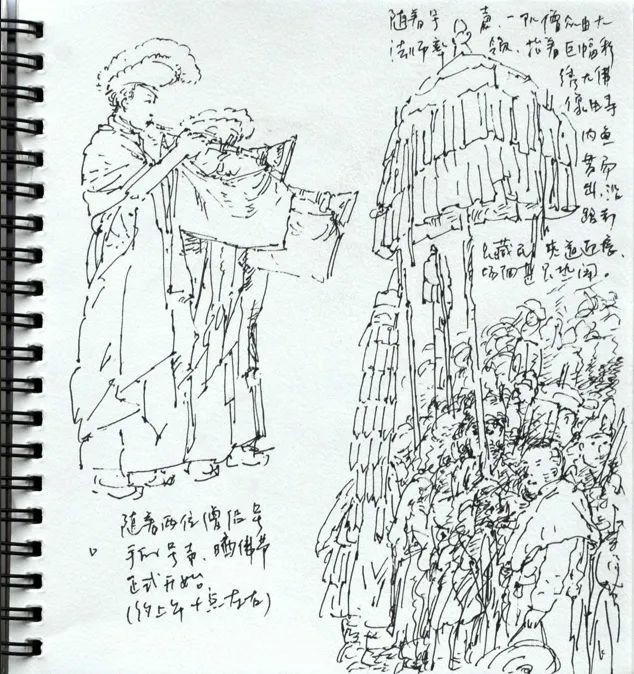 随着号声、一队僧众由大
法师率领、抬着巨幅彩
绣大佛
像由寺
内鱼
贯而
出、沿
路
藏民夹道迎接、
场面甚是热闹。
随着两位僧侣号
手的号声、晒佛节
正式开始。
(约上午十点左右)